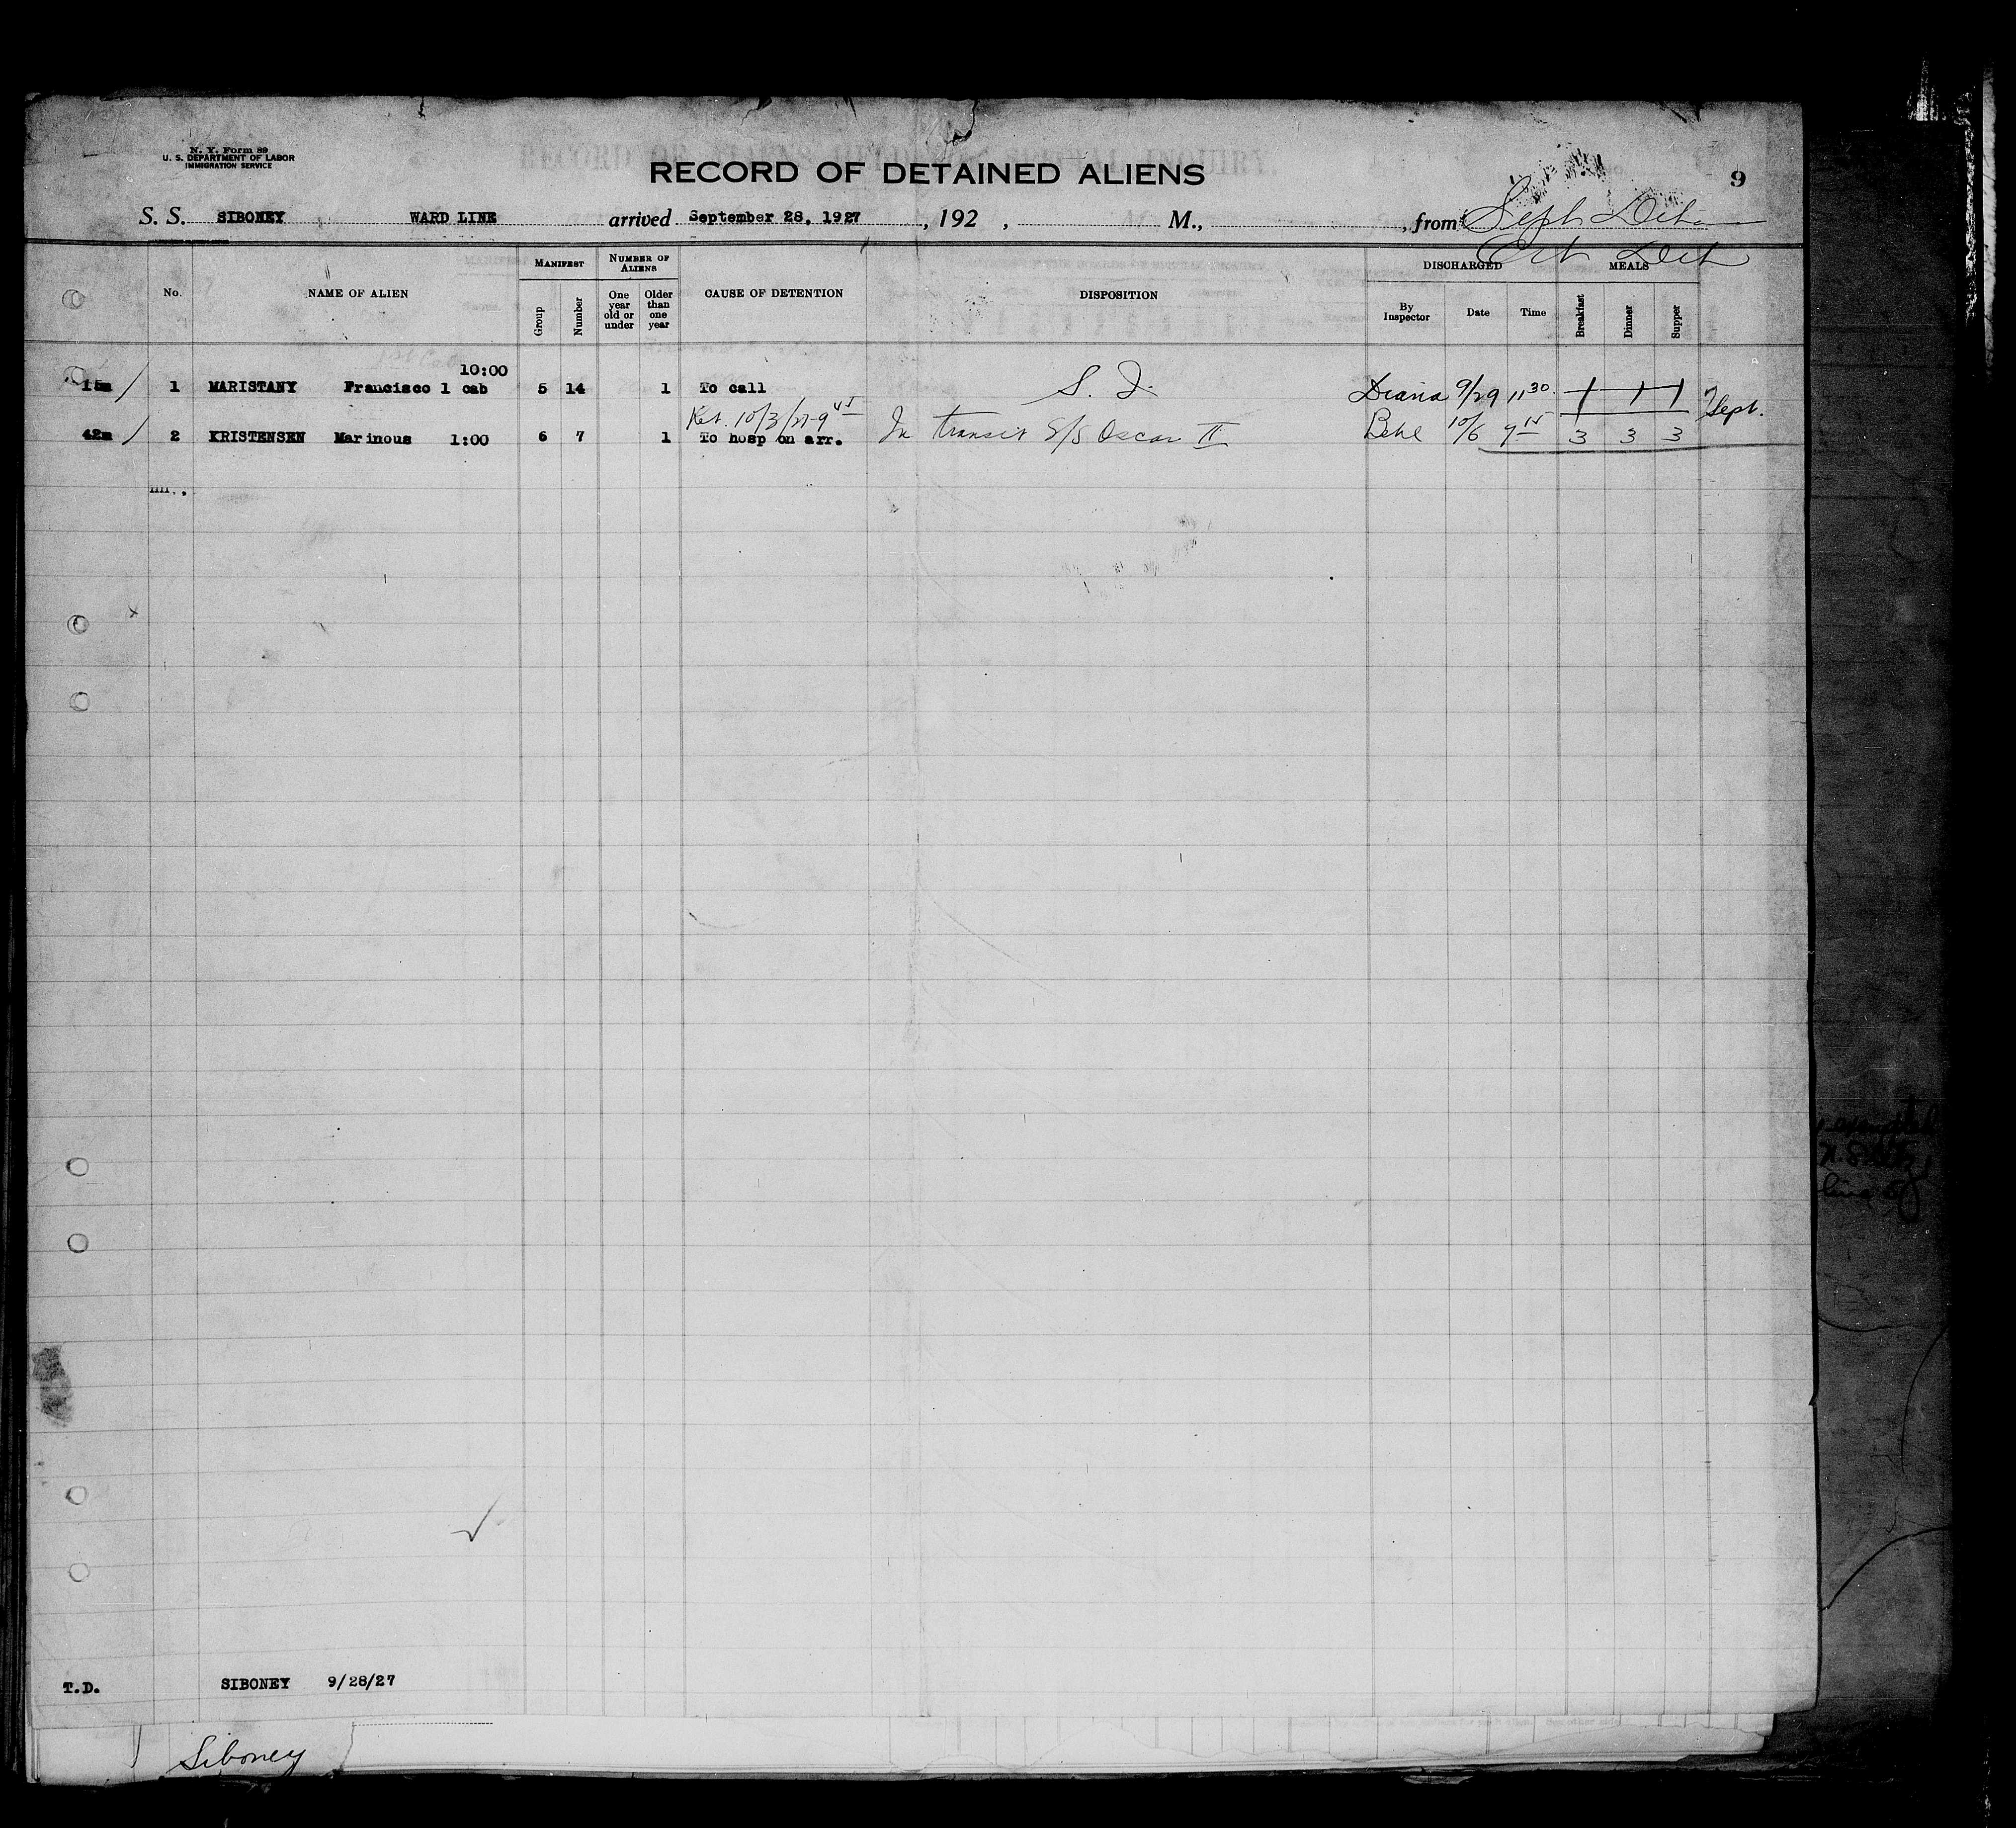 N. Y. Form 89
U. S. DEPARTMENT OF LABOR
IMMIGRATION SERVICE
RECORD OF DETAINED ALIENS
9
S. S. SIBONEY WARD LINE arrived September 28, 1927, 192 , M., , from Sept Det
Oct Det
No. NAME OF ALIEN MANIFEST Group Number NUMBER OF ALIENS One year old or under Older than one year CAUSE OF DETENTION DISPOSITION DISCHARGED By Inspector Date Time MEALS Breakfast Dinner Supper
10:00
15m / 1 MARISTANY Francisco 1 cab 5 14 1 To call S. I. 9/29 11 30 1 1 1
Sept.
Ret. 10/3/27-9 45
42m / 2 KRISTENSEN Marinous 1:00 6 7 1 To hosp on arr. In transit S/S Oscar II 10/6 9 15 3 3 3
T.D. SIBONEY 9/28/27
Siboney